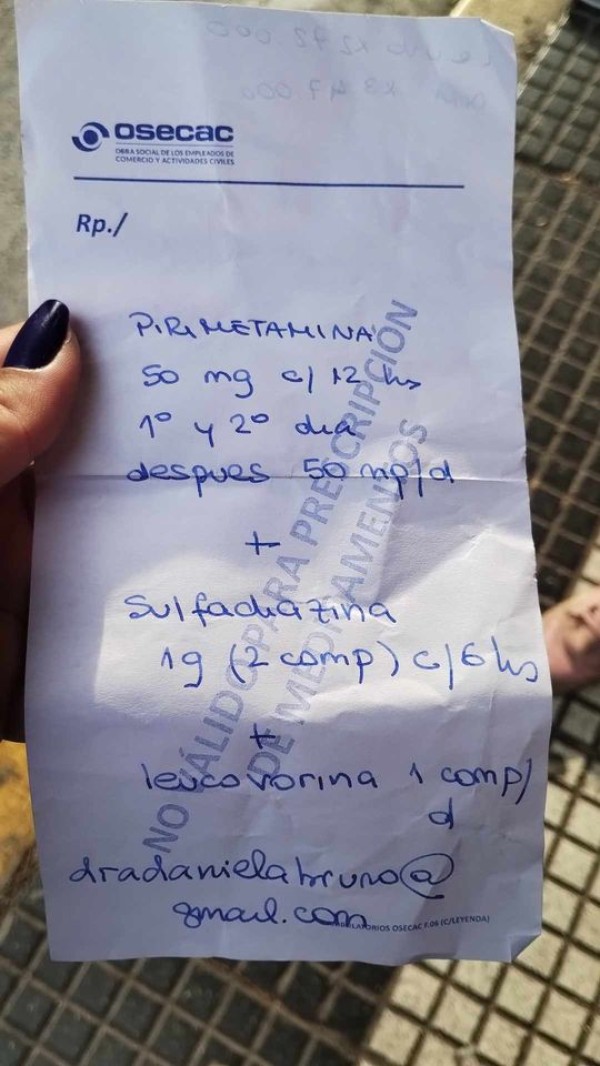 osecac
OBRA SOCIAL DE LOS EMPLEADOS DE
COMERCIO Y ACTIVIDADES CIVILES
Rp./
PIRIMETAMINA
50 mg c/ 12 hs
1° y 2° dia
despues 50 mg/d
+
Sulfadiazina
1g (2 comp) c/6 hs
+
leucovorina 1 comp/
d
dradanielabruno@
gmail.com
NO VÁLIDO PARA PRESCRIPCIÓN
DE MEDICAMENTOS
OSECAC F.06 (C/LEYENDA)